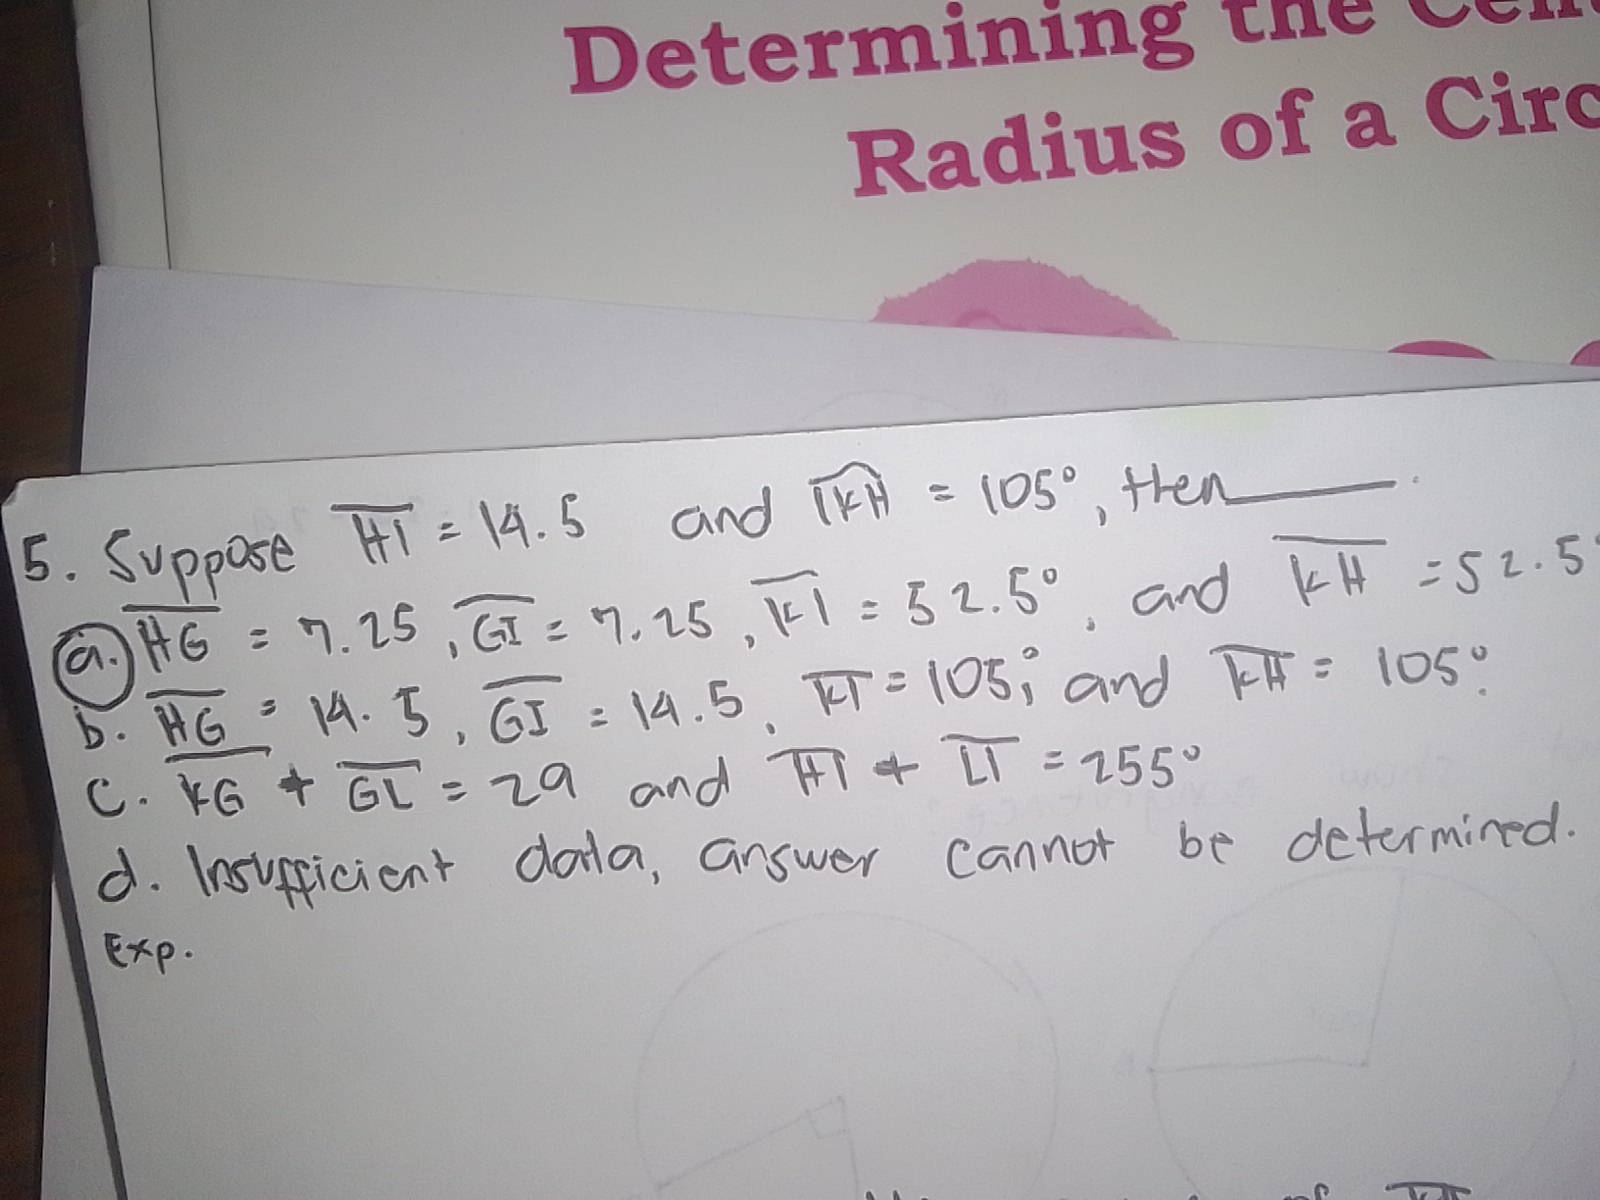 Determining the
Radius of a Circ
5. Suppose HI = 14.5 and IKH = 105°, then______.
a. HG = 7.25, GI = 7.25, KI = 52.5°, and KH = 52.5°
b. HG = 14.5, GI = 14.5, KI = 105°, and KH = 105°.
c. KG + GL = 29 and HI + LI = 255°
d. Insufficient data, answer cannot be determined.
Exp.